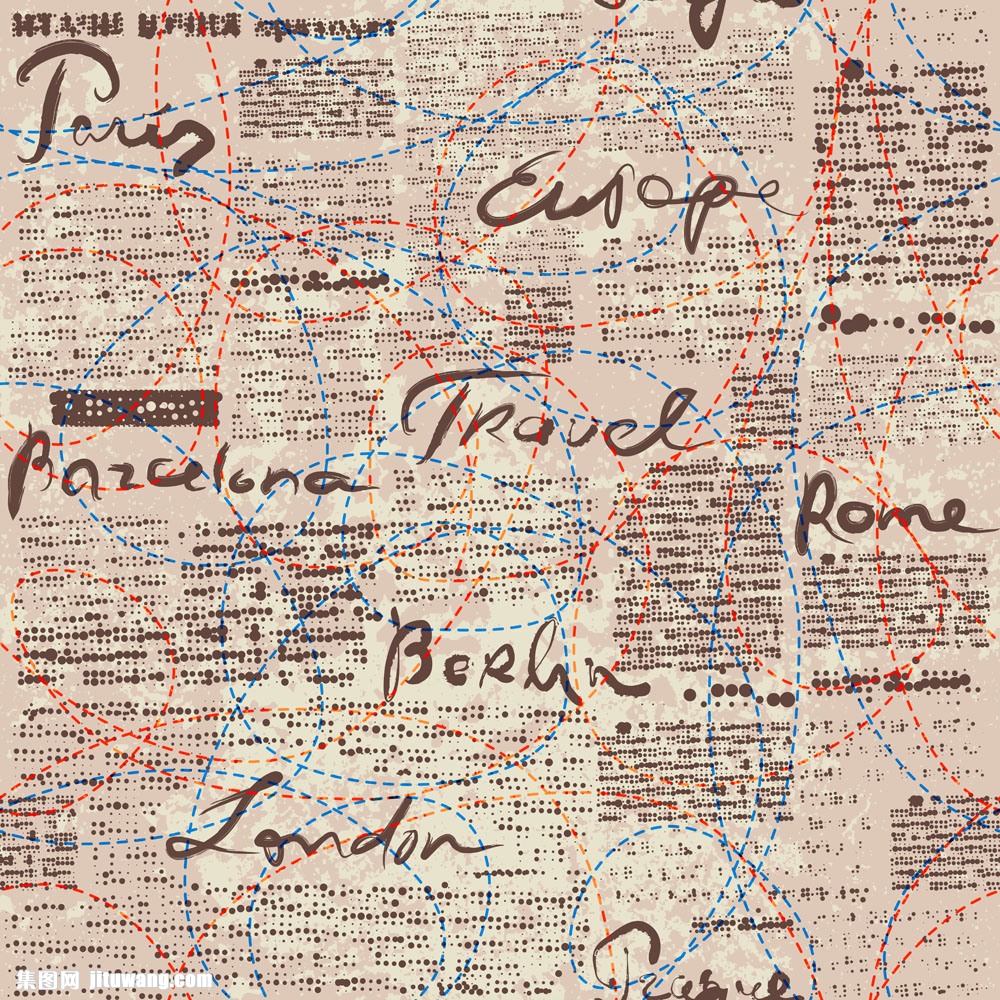 Paris
Europe
Travel
Barcelona
Rome
Berlin
London
Prague
集图网 jituwang.com